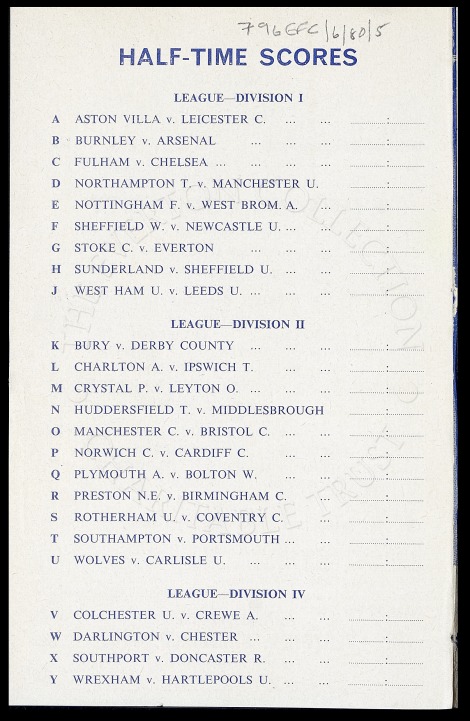 796EFC/6/80/5
HALF-TIME SCORES
LEAGUE—DIVISION I
A ASTON VILLA v. LEICESTER C. ... ... ..........:..........
B BURNLEY v. ARSENAL ... ... ... ..........:..........
C FULHAM v. CHELSEA ... ... ... ..........:..........
D NORTHAMPTON T. v. MANCHESTER U. ..........:..........
E NOTTINGHAM F. v. WEST BROM. A. ... ..........:..........
F SHEFFIELD W. v. NEWCASTLE U. ... ... ..........:..........
G STOKE C. v. EVERTON ... ... ... ..........:..........
H SUNDERLAND v. SHEFFIELD U. ... ... ..........:..........
J WEST HAM U. v. LEEDS U. ... ... ... ..........:..........
LEAGUE—DIVISION II
K BURY v. DERBY COUNTY ... ... ... ..........:..........
L CHARLTON A. v. IPSWICH T. ... ... ..........:..........
M CRYSTAL P. v. LEYTON O. ... ... ... ..........:..........
N HUDDERSFIELD T. v. MIDDLESBROUGH ..........:..........
O MANCHESTER C. v. BRISTOL C. ... ... ..........:..........
P NORWICH C. v. CARDIFF C. ... ... ..........:..........
Q PLYMOUTH A. v. BOLTON W. ... ... ..........:..........
R PRESTON N.E. v. BIRMINGHAM C. ... ..........:..........
S ROTHERHAM U. v. COVENTRY C. ... ..........:..........
T SOUTHAMPTON v. PORTSMOUTH ... ... ..........:..........
U WOLVES v. CARLISLE U. ... ... ... ..........:..........
LEAGUE—DIVISION IV
V COLCHESTER U. v. CREWE A. ... ... ..........:..........
W DARLINGTON v. CHESTER ... ... ... ..........:..........
X SOUTHPORT v. DONCASTER R. ... ... ..........:..........
Y WREXHAM v. HARTLEPOOLS U. ... ... ..........:..........